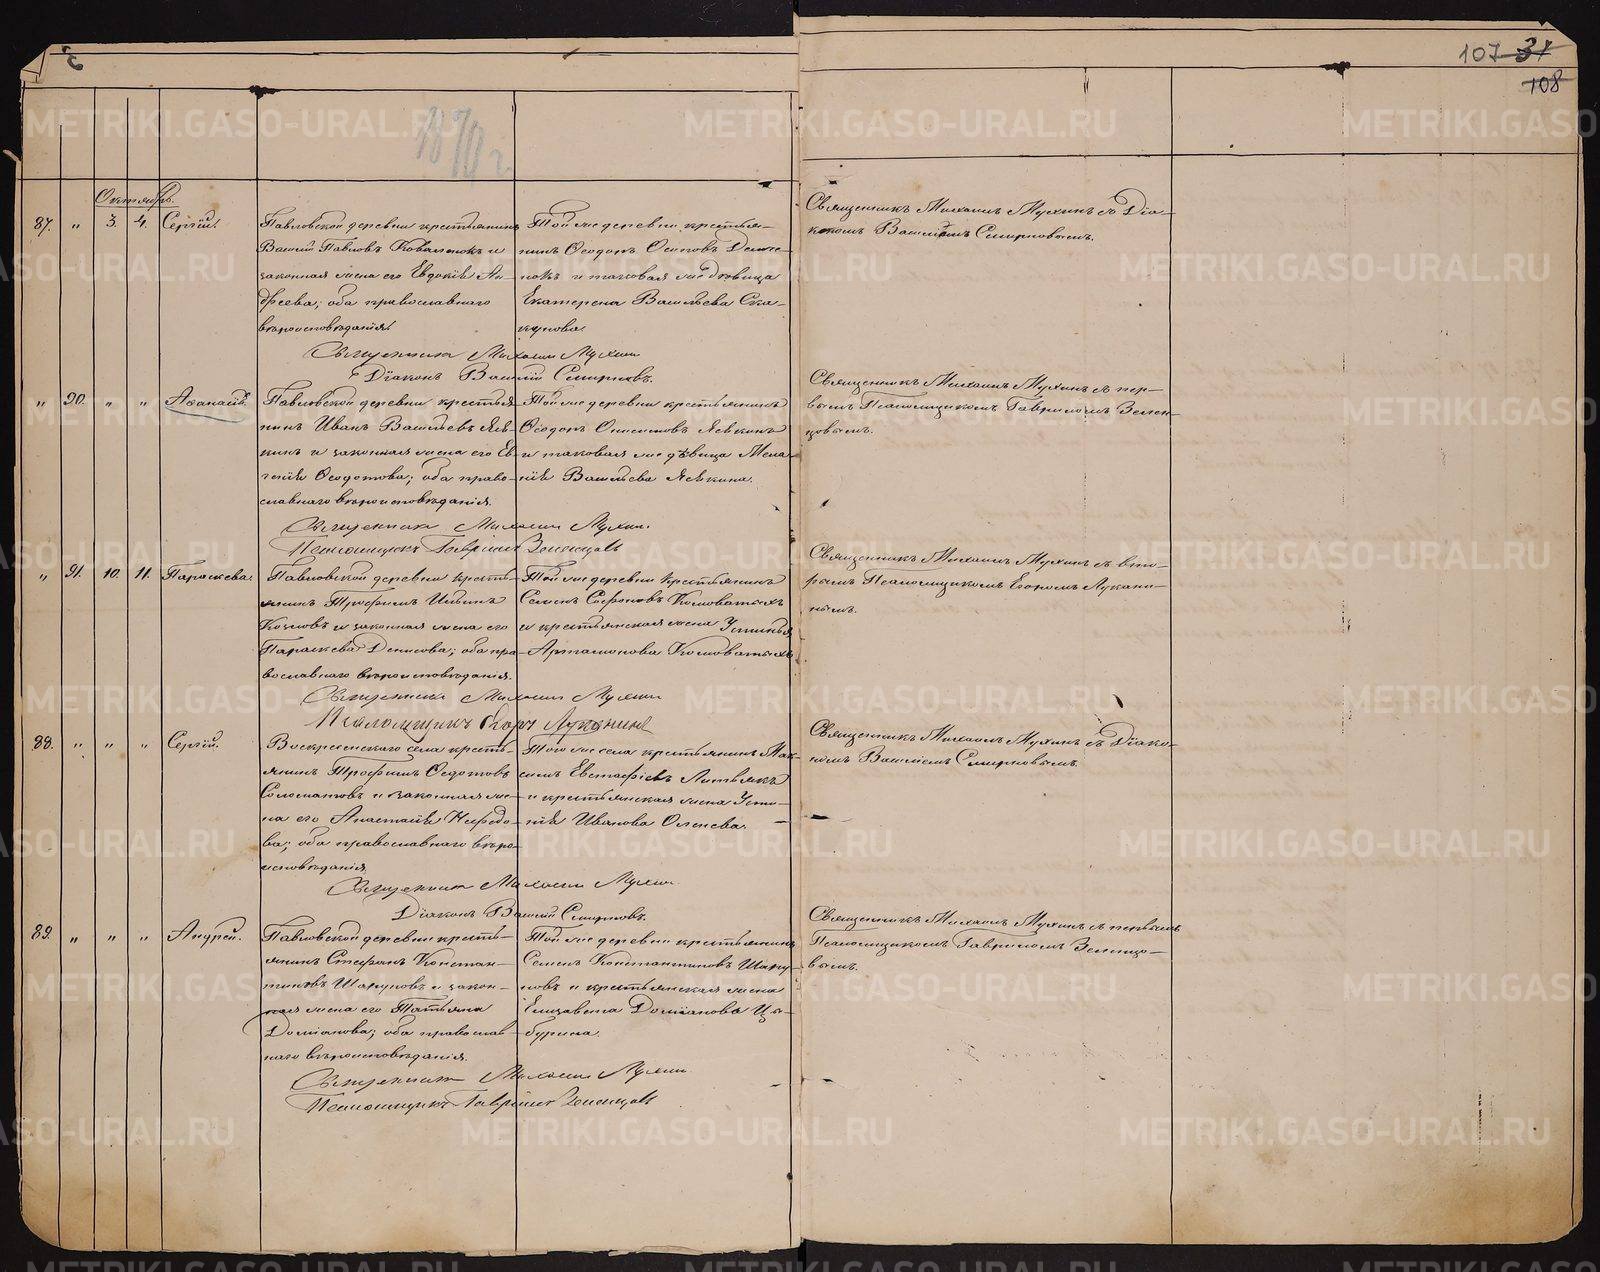 107 31
108
1870 г.
Октябрь.
87. " 3. 4. Сергiй.
Павловской деревни крестьянинъ
Василiй Павловъ Ковалюкъ и
законная жена его Евдокiя Ан-
дреева; оба православнаго
вѣроисповѣданiя.
Той же деревни крестья-
нинъ Ѳеодоръ Осиповъ
и таковая же дѣвица
Екатерина Васильева Ска-
кунова.
Священникъ Михаилъ Мухинъ съ Дiа-
кономъ Василiемъ Смирновымъ.
Священникъ Михаилъ Мухинъ
Дiаконъ Василiй Смирновъ.
" 90. " " Аѳанасiй.
Павловской деревни крестья-
нинъ Иванъ Васильевъ Яв-
кинъ и законная жена его Ев-
генiя Ѳеодотова; оба право-
славнаго вѣроисповѣданiя.
Той же деревни крестьянинъ
Ѳеодоръ Онисимовъ Явкинъ
и таковая же дѣвица Мела-
нiя Васильева Явкина.
Священникъ Михаилъ Мухинъ съ пер-
вымъ Псаломщикомъ Гаврiиломъ Зелен-
цовымъ.
Священникъ Михаилъ Мухинъ
Псаломщикъ Гаврiилъ Зеленцовъ
" 91. 10. 11. Параскева.
Павловской деревни кресть-
янинъ Трофимъ Ильинъ
Козловъ и законная жена его
Параскева Денисова; оба пра-
вославнаго вѣроисповѣданiя.
Той же деревни крестьянинъ
Семенъ Софоновъ Коловатыхъ
и крестьянская жена Устинья
Артамонова Коловатыхъ
Священникъ Михаилъ Мухинъ съ вто-
рымъ Псаломщикомъ Егоромъ Лукани-
нымъ.
Священникъ Михаилъ Мухинъ
Псаломщикъ Егоръ Луканинъ
88. " " " Сергiй.
Воскресенскаго села кресть-
янинъ Трофимъ Ѳедотовъ
Соломатовъ и законная же-
на его Анастасiя Неѳедо-
ва; оба православнаго вѣро-
исповѣданiя.
Того же села крестьянинъ Мак-
симъ Евстафiевъ Литвякъ
и крестьянская жена Усти-
нiя Иванова Оленева.
Священникъ Михаилъ Мухинъ съ Дiако-
номъ Василiемъ Смирновымъ.
Священникъ Михаилъ Мухинъ
Дiаконъ Василiй Смирновъ.
89. " " " Андрей.
Павловской деревни кресть-
янинъ Стефанъ Констан-
тиновъ Шаруповъ и закон-
ная жена его Татьяна
Домiанова; оба православ-
наго вѣроисповѣданiя.
Той же деревни крестьянинъ
Семенъ Константиновъ Шару-
повъ и крестьянская жена
Елизавета Домiанова Цы-
бурина.
Священникъ Михаилъ Мухинъ съ первымъ
Псаломщикомъ Гаврiиломъ Зеленцо-
вымъ.
Священникъ Михаилъ Мухинъ
Псаломщикъ Гаврiилъ Зеленцовъ
METRIKI.GASO-URAL.RU